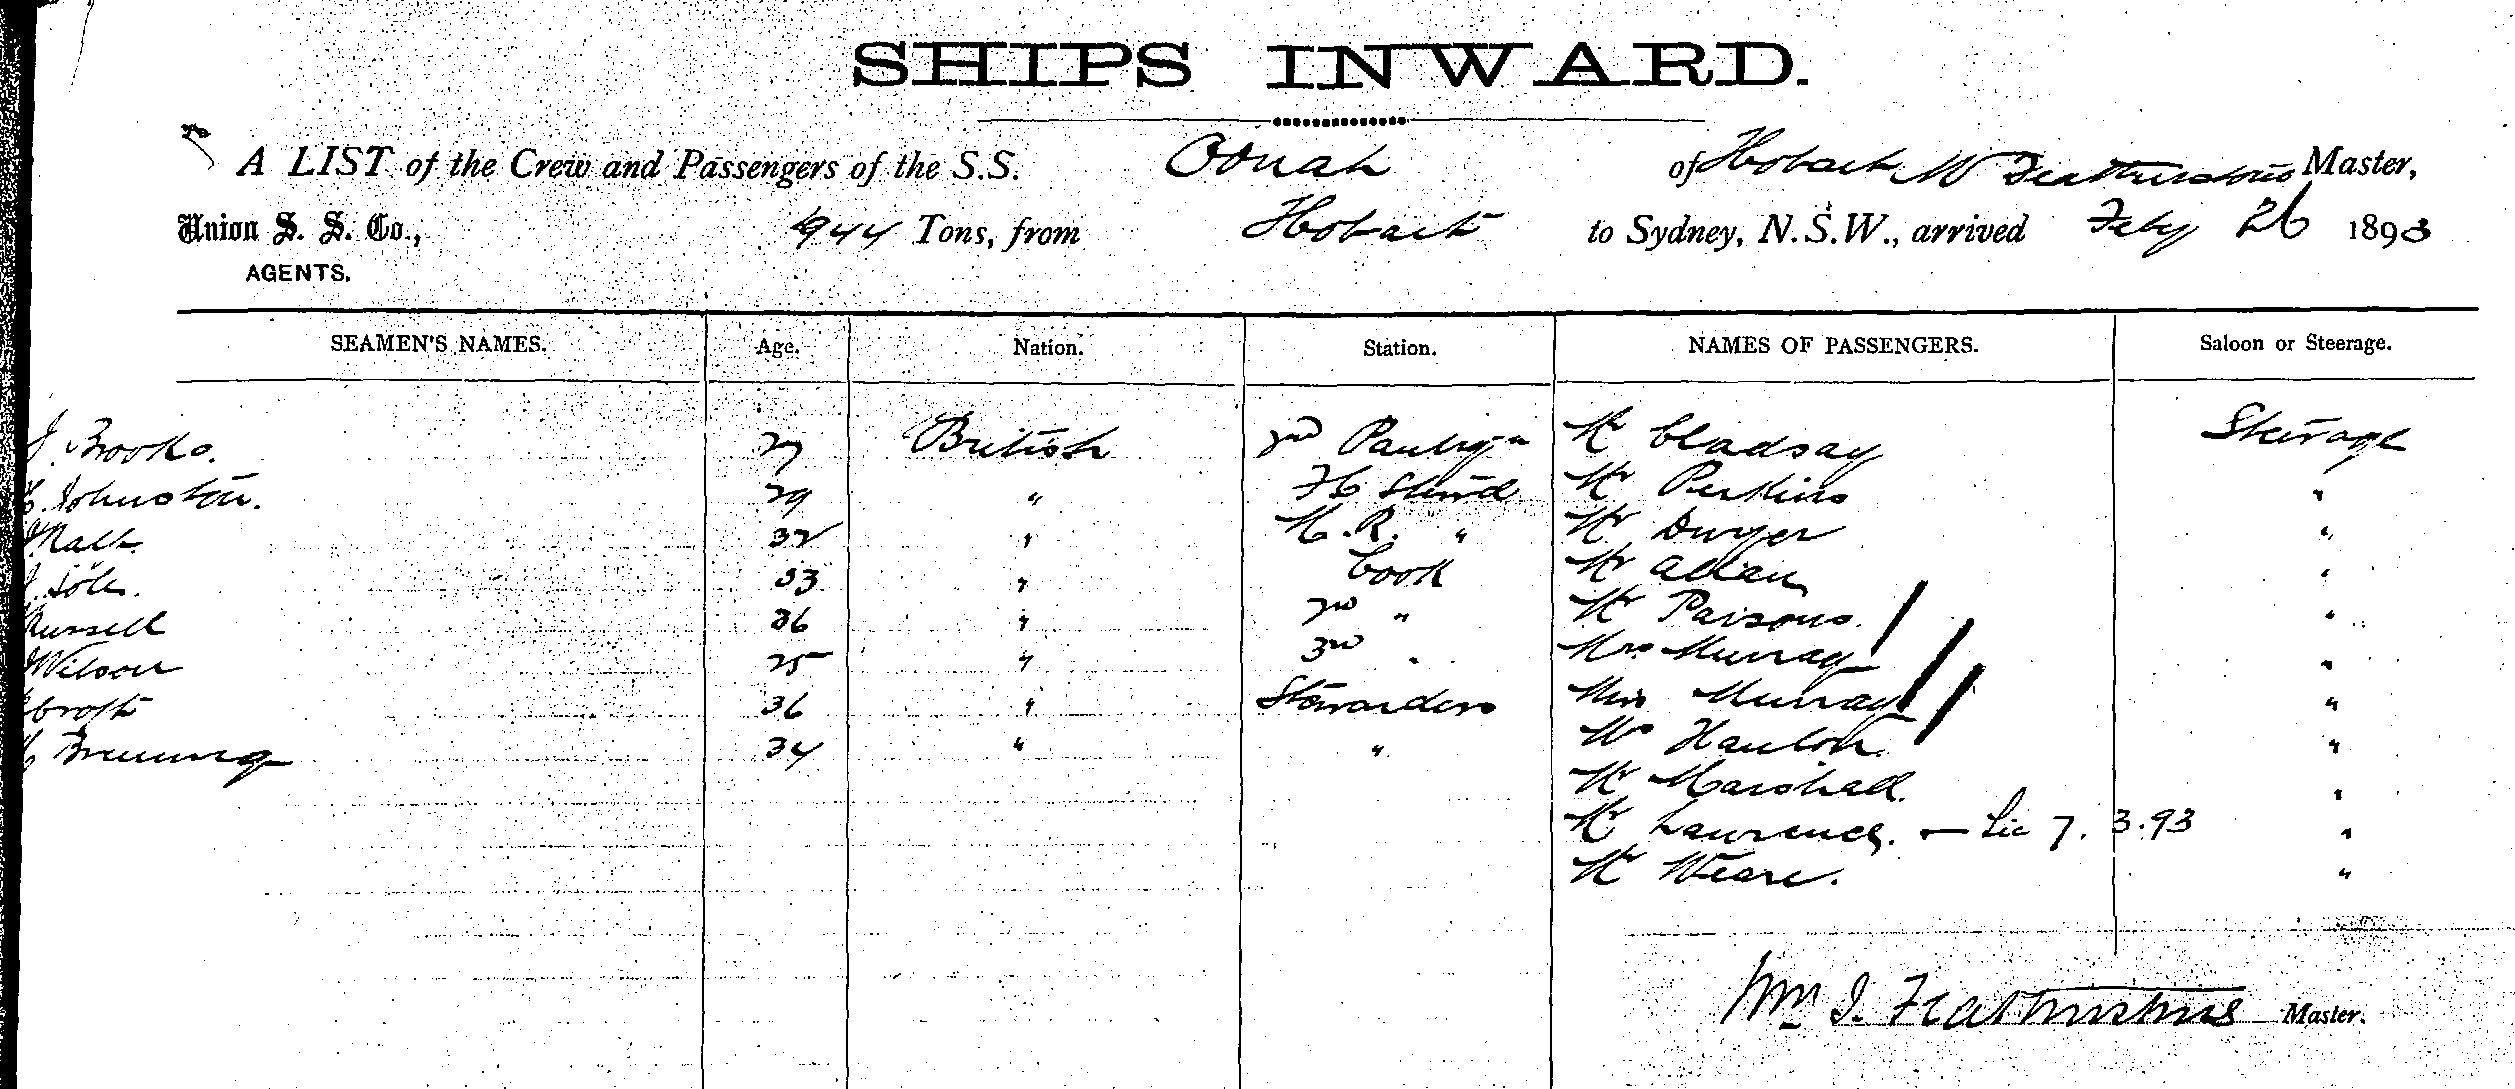 SHIPS INWARD.
A LIST of the Crew and Passengers of the S.S. Oonah of Hobart W Featherstone Master,
Union S. S. Co., 944 Tons, from Hobart to Sydney, N.S.W., arrived Feby 26 1893
AGENTS.
SEAMEN'S NAMES. Age. Nation. Station. NAMES OF PASSENGERS. Saloon or Steerage.
J. Brooks. 27 British 2nd Pantryn Mr Steerage
Johnston. 29 " Steward Mr Perkins "
32 " " Mr Dwyer "
33 " Cook Mr Allan "
Russell 36 " 2nd " Mr Parsons. "
Wilson 25 " 3rd " Mrs Murray "
Croft 36 " Stewardess Miss Murray "
34 " " Hanlon "
Mr Marshall. "
Mr Lawrence. — Lic 7. 3.93 "
Mr Weare. "
Wm J. Featherstone Master.